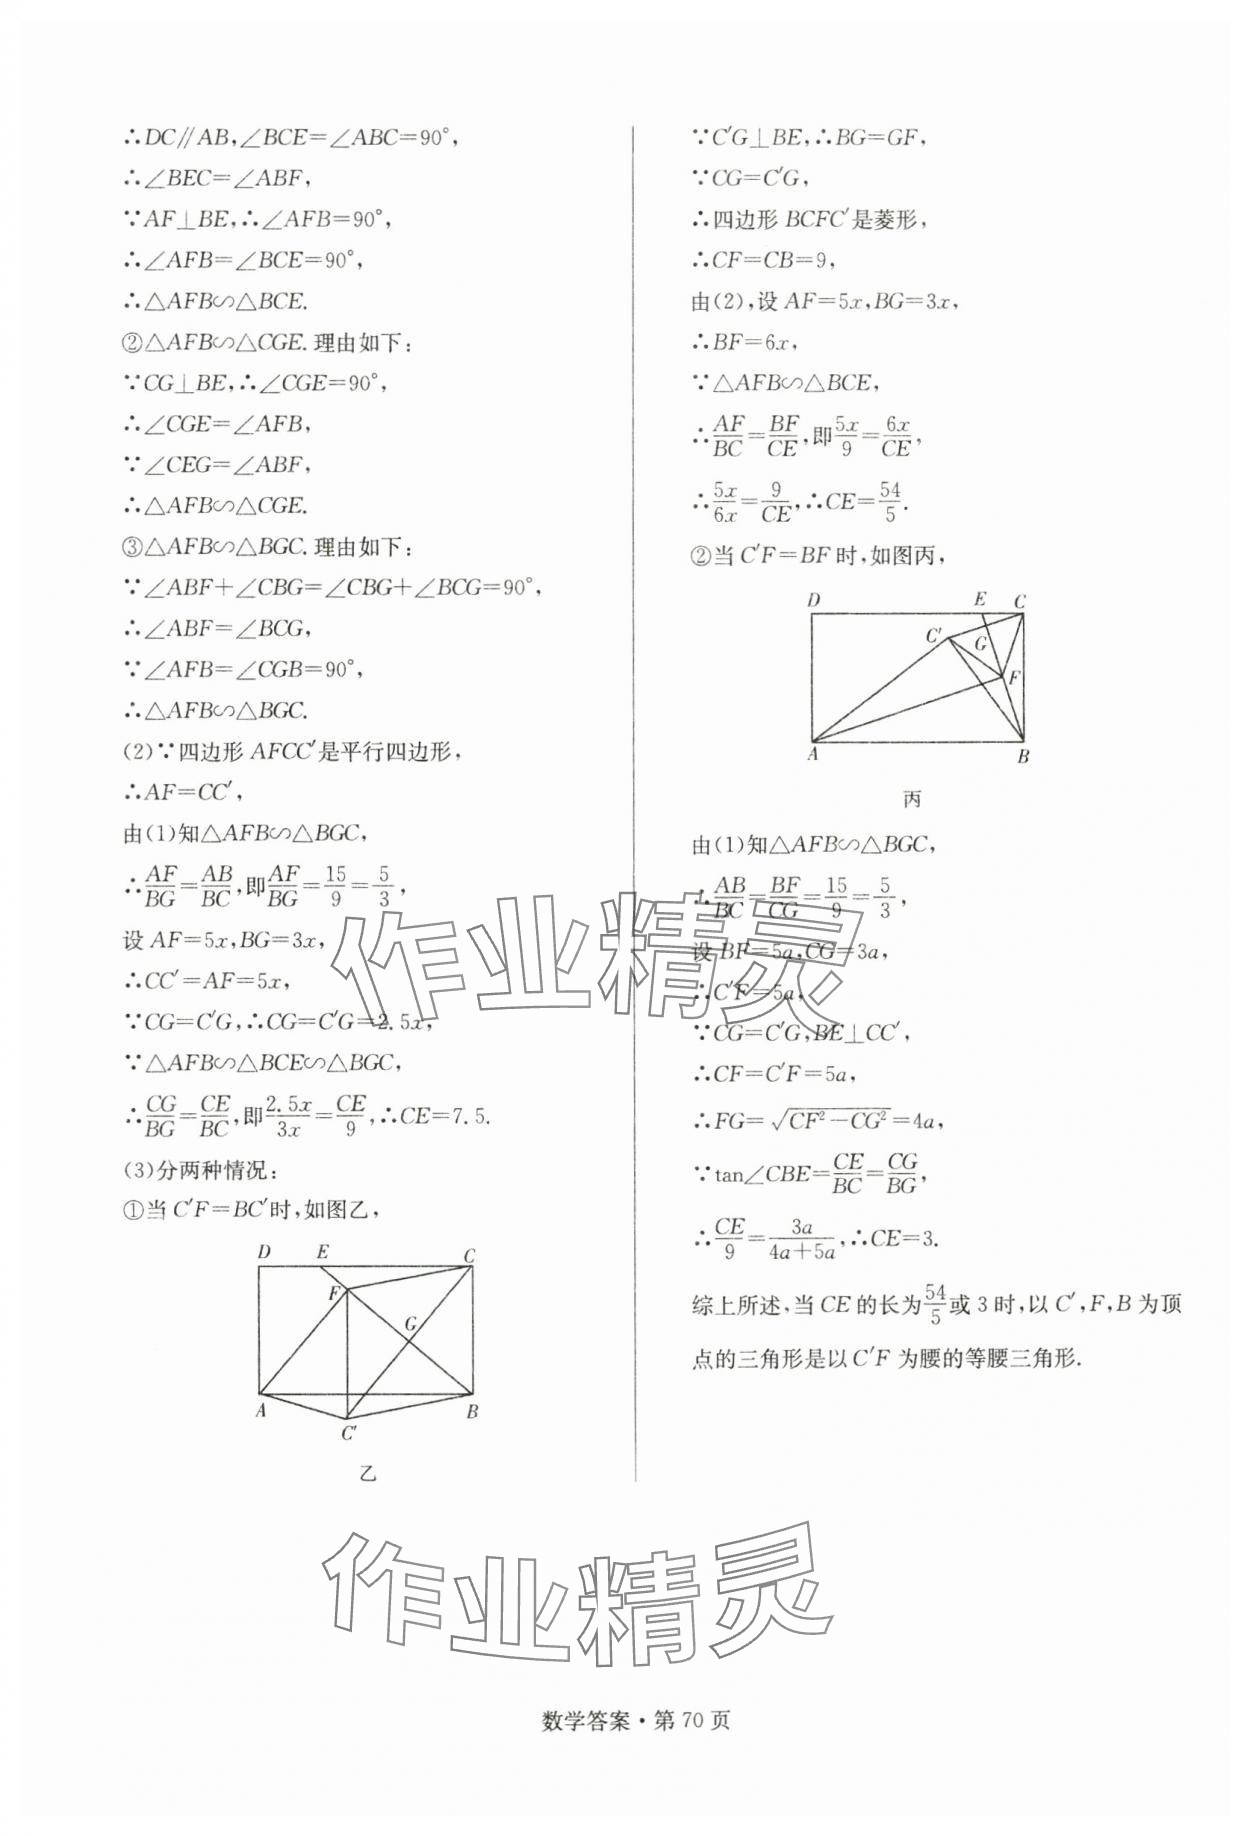 ∴DC∥AB,∠BCE=∠ABC=90°,
∴∠BEC=∠ABF,
∵AF⊥BE,∴∠AFB=90°,
∴∠AFB=∠BCE=90°,
∴△AFB∽△BCE.
②△AFB∽△CGE.理由如下:
∵CG⊥BE,∴∠CGE=90°,
∴∠CGE=∠AFB,
∵∠CEG=∠ABF,
∴△AFB∽△CGE.
③△AFB∽△BGC.理由如下:
∵∠ABF+∠CBG=∠CBG+∠BCG=90°,
∴∠ABF=∠BCG,
∵∠AFB=∠CGB=90°,
∴△AFB∽△BGC.
(2)∵四边形AFCC′是平行四边形,
∴AF=CC′,
由(1)知△AFB∽△BGC,
∴AF/BG=AB/BC,即AF/BG=15/9=5/3,
设AF=5x,BG=3x,
∴CC′=AF=5x,
∵CG=C′G,∴CG=C′G=2.5x,
∵△AFB∽△BCE∽△BGC,
∴CG/BG=CE/BC,即2.5x/3x=CE/9,∴CE=7.5.
(3)分两种情况:
①当C′F=BC′时,如图乙,
D E C
F
G
A B
C′
乙
∵C′G⊥BE,∴BG=GF,
∵CG=C′G,
∴四边形BCFC′是菱形,
∴CF=CB=9,
由(2),设AF=5x,BG=3x,
∴BF=6x,
∵△AFB∽△BCE,
∴AF/BC=BF/CE,即5x/9=6x/CE,
∴5x/6x=9/CE,∴CE=54/5.
②当C′F=BF时,如图丙,
D E C
C′ G
F
A B
丙
由(1)知△AFB∽△BGC,
∴AB/BC=BF/CG=15/9=5/3,
设BF=5a,CG=3a,
∴C′F=5a,
∵CG=C′G,BE⊥CC′,
∴CF=C′F=5a,
∴FG=√(CF²−CG²)=4a,
∵tan∠CBE=CE/BC=CG/BG,
∴CE/9=3a/(4a+5a),∴CE=3.
综上所述,当CE的长为54/5或3时,以C′,F,B为顶
点的三角形是以C′F为腰的等腰三角形.
作业精灵
作业精灵
数学答案·第70页